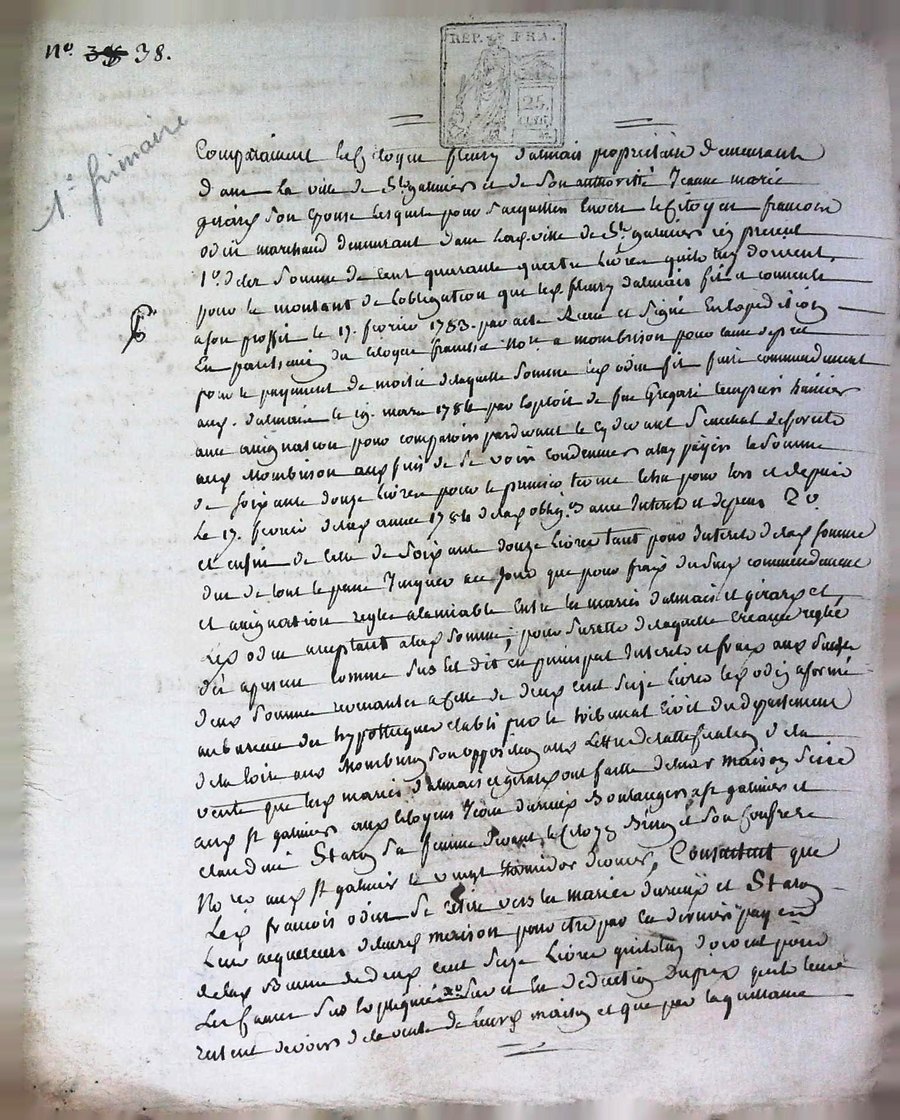 N.º 38.
REP. FRA.
25.
CENT.
1er frimaire
Comparaissent le Citoyen fleury dalmais propriétaire demeurant
dans la ville de St. galmier et de son authorité Jeanne marie
girard son epouse lesquels pour s'acquitter envers le Citoyen francois
odin marchand demeurant dans lad. ville de St. galmier icy present
1.º de la somme de cent quarante quatre livres qu'ils luy doivent
pour le montant de l'obligation que led. fleury dalmais fit et consentit
a son proffit le 17. fevrier 1783. par acte Reçu et signé En Expedition
En parchemin du citoyen franc No.re a monbrison pour cause de prêt
pour le payment de moitié de laquelle somme led. odin fit faire commandement
aud. dalmais le 19. mars 1784 par Exploit de huissier
avec assignation pour comparoir pardevant le cy devant Senechal de forets
aud. Monbrison aux fins de se voir condamner a luy payer la somme
de soixante douze livres pour le premier terme echu pour lors et depuis
Le 17. fevrier de lad. année 1784 de lad. oblig.on avec Interets et depens 2.º
et enfin de celle de soixante douze livres tant pour Interets de lad. somme
dus de tout le passé Jusques a ce Jour que pour fraix dud. commandement
et assignation reglés a lamiable Entre les mariés dalmais et girard et
Led. odin acceptant a lad. somme; pour sureté de laquelle creance reglée
dès apresent comme sus est dit en principal Interets et fraix aux susdites
deux sommes revenantes a celle de deux cent seize livres led. odin a formé
au bureau des hypotheques etabli près le tribunal Civil du departement
de la loire aud. Monbrison son opposition aux Lettres de ratification de la
vente que les mariés dalmais et girard ont faitte de leur maison scize
aud. St. galmier aux citoyens boulanger a St. galmier et
claudine Staron sa femme devant le Citoyen et son confrere
No.res aud. St. galmier le vingt Consentent que
Led. francois odin se retire vers les mariés et Staron
Leurs acquereurs de leurd. maison pour etre par ces derniers payé
de lad. somme de deux cent seize livres qu'ils luy doivent pour
Les causes sus expliquées sur et en deduction du prix qu'ils leurs
restent devoir de la vente de leurd. maison et que par la quittance